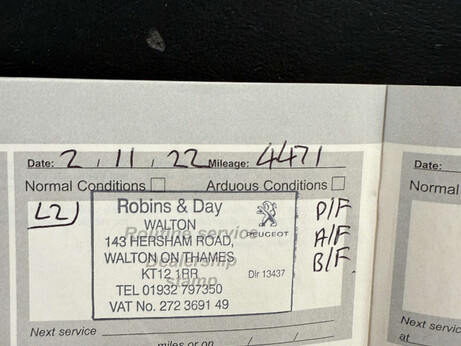 Date: 2 / 11 / 22 Mileage: 4471
Date:
Normal Conditions Arduous Conditions
Normal
Robins & Day
WALTON
Routine service
PEUGEOT
143 HERSHAM ROAD,
Dealership
WALTON ON THAMES
stamp
KT12 1RR
Dlr 13437
TEL 01932 797350
VAT No. 272 3691 49
P/F
A/F
B/F
Next service
miles or on / /
Next serv
at